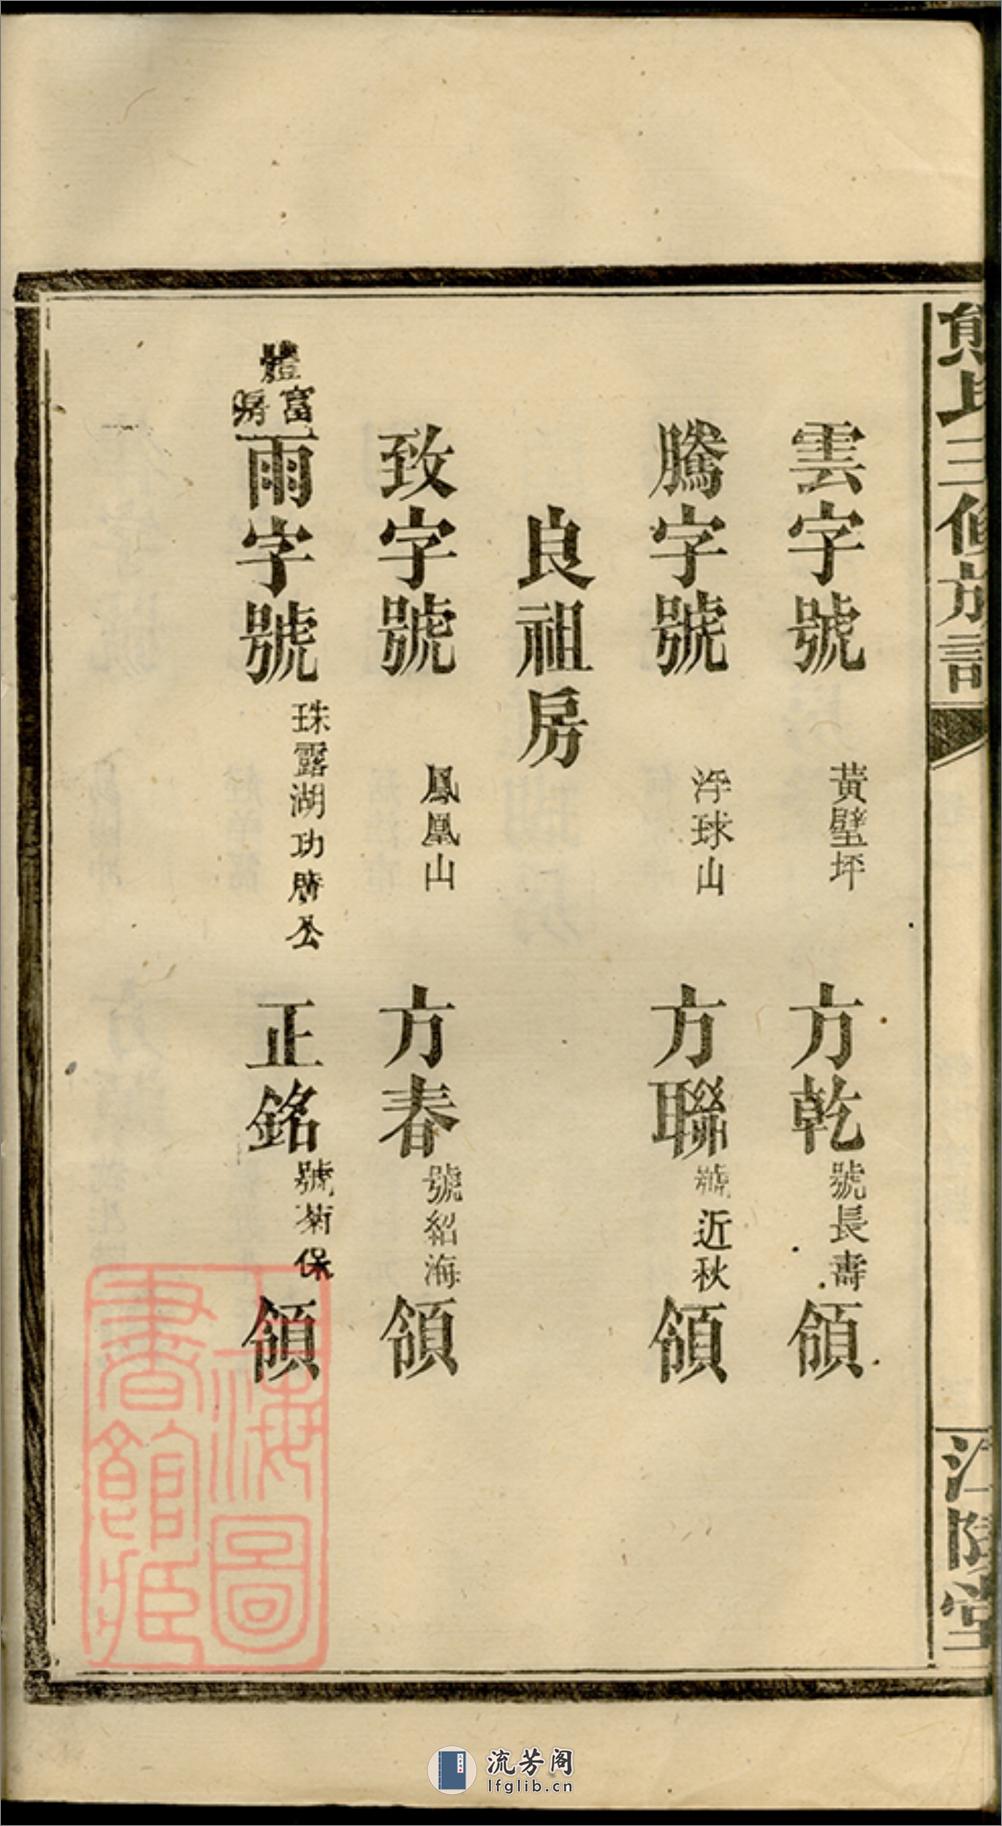 熊氏三修族譜
江陵堂
雲字號 黃壁坪 方乾 號長壽 領
騰字號 浮球山 方聯 號近秋 領
良祖房
致字號 鳳凰山 方春 號紹海 領
體富房 雨字號 珠露湖功勝公 正銘 號菊保 領
上海圖書館藏
流芳阁
lfglib.cn